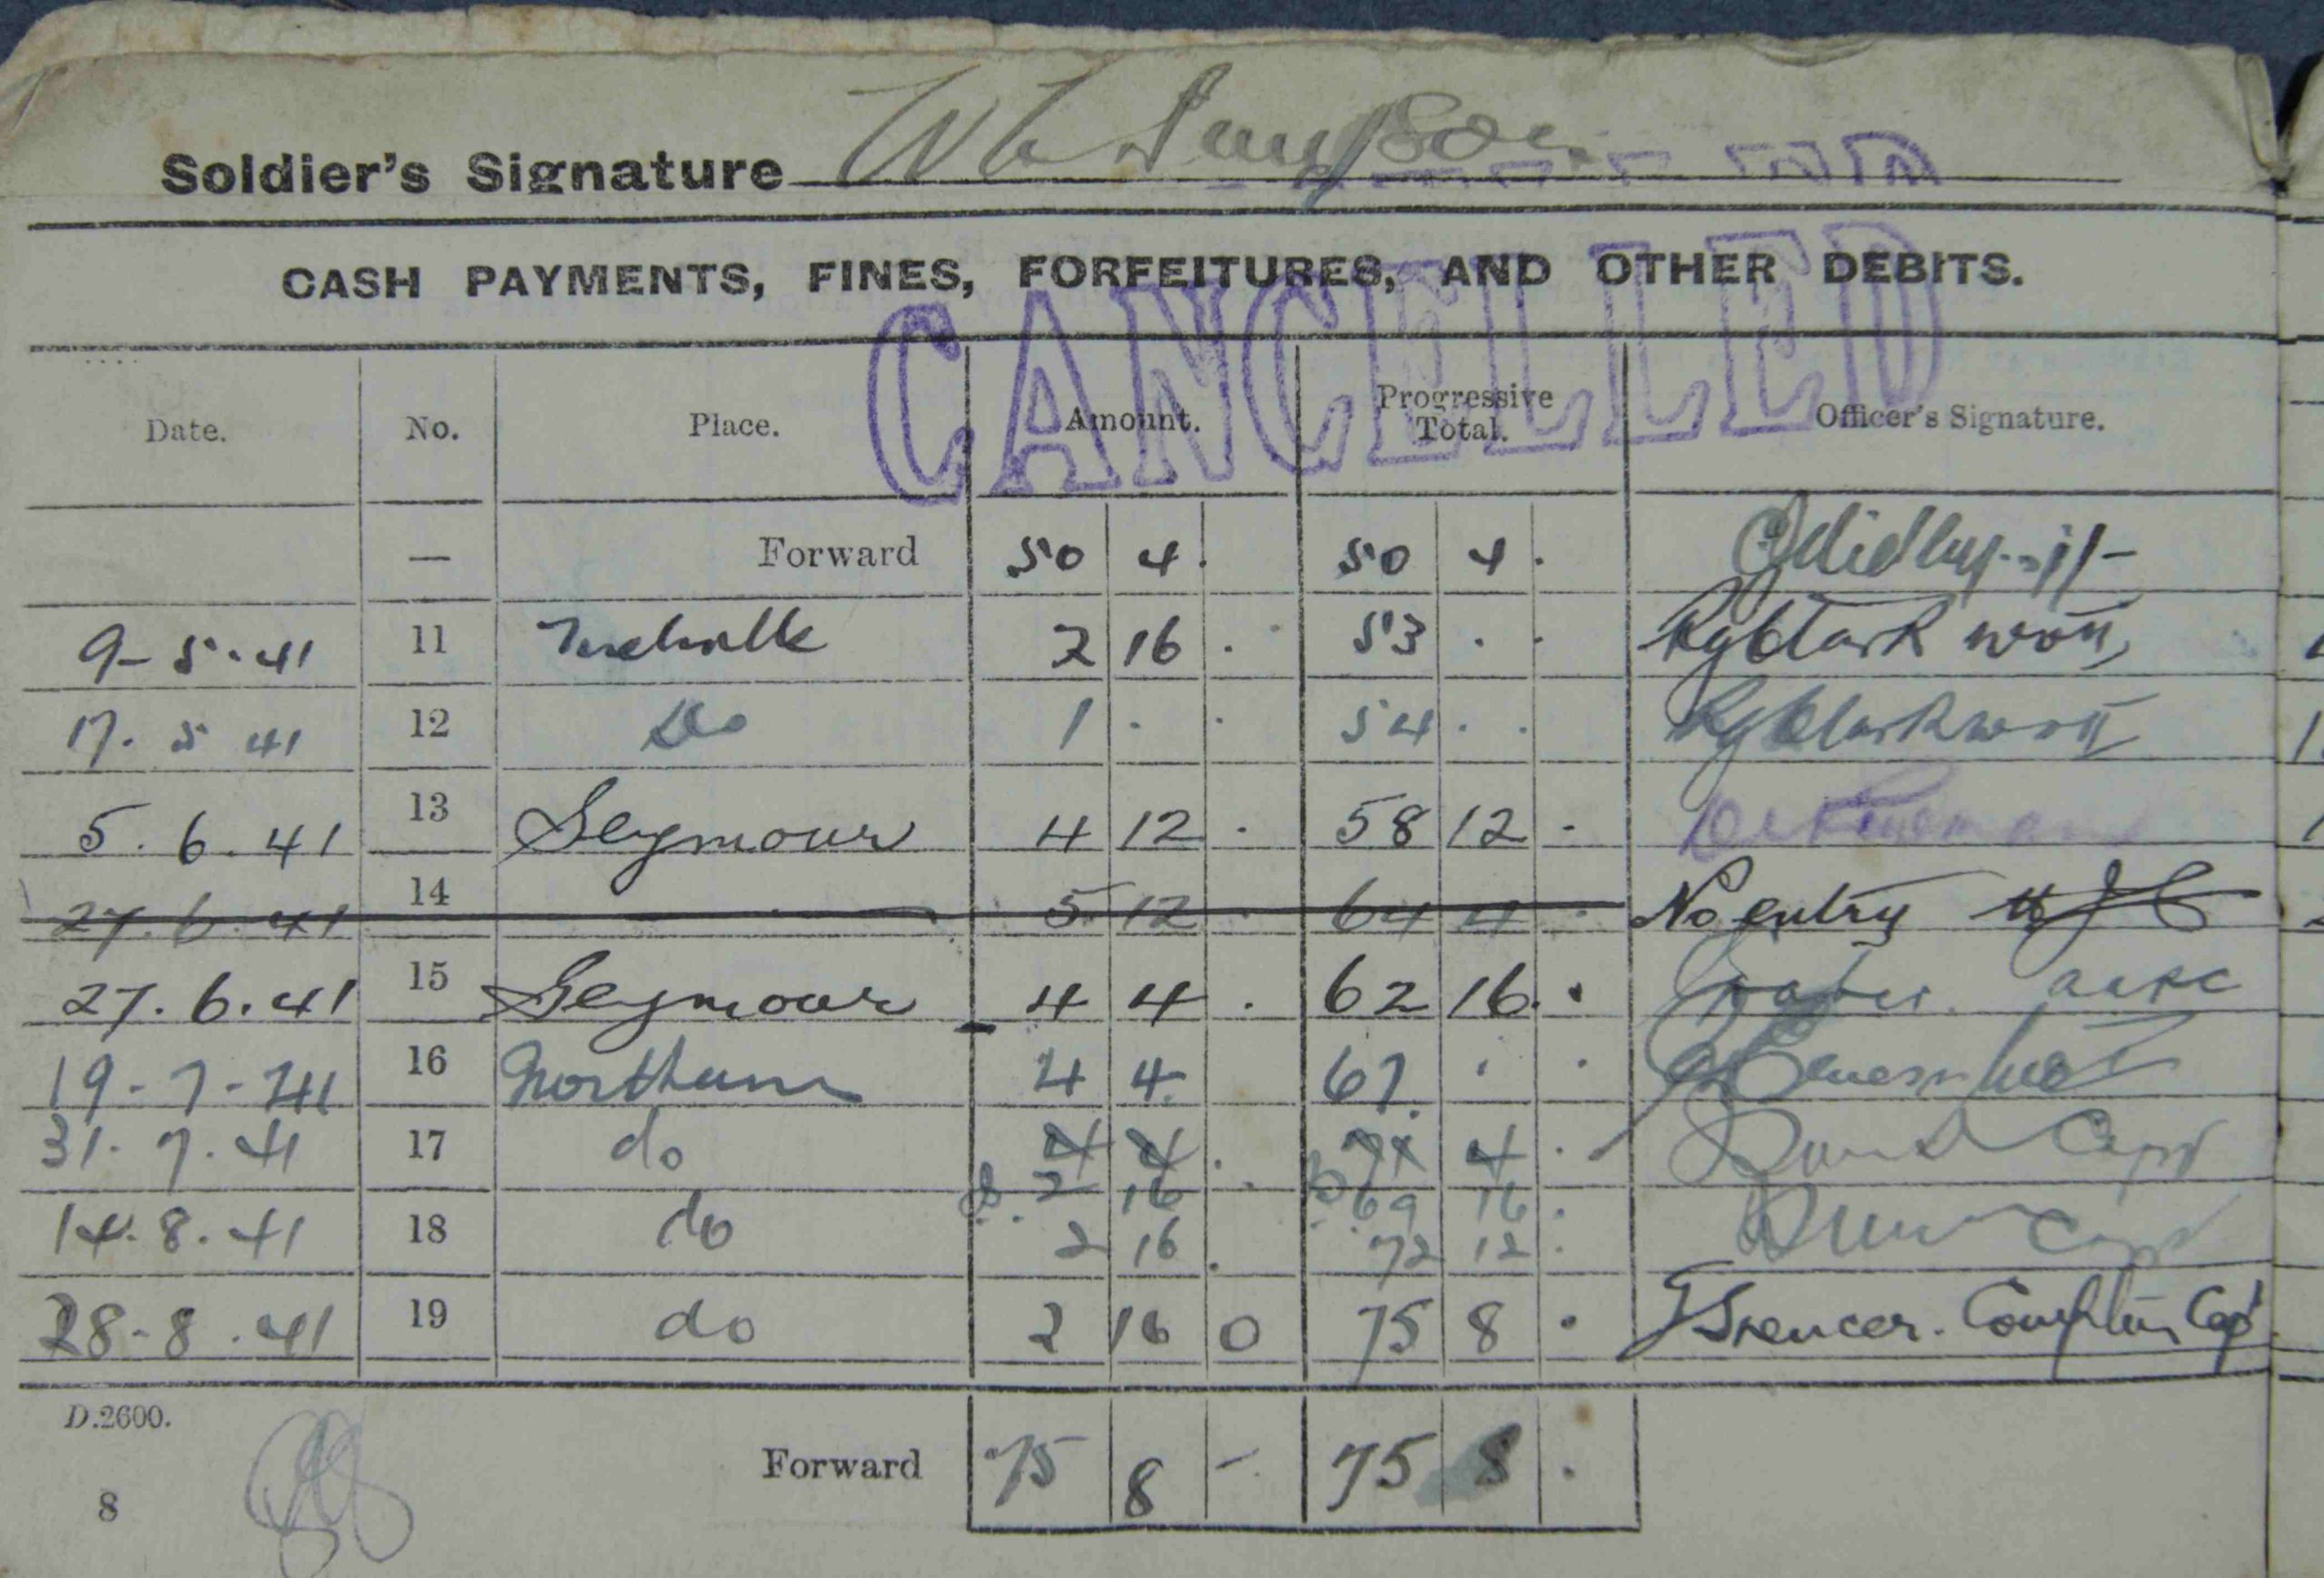 Soldier's Signature W Simpson
CASH PAYMENTS, FINES, FORFEITURES, AND OTHER DEBITS.
CANCELLED
Date. No. Place. Amount. Progressive Total. Officer's Signature.
— Forward 50 4 . 50 4 .
9-5-41 11 2 16 . 53 . .
17.5 41 12 Do 1 . . 54 . .
5.6.41 13 Seymour 4 12 . 58 12 -
27.6.41 14 5 12 . 64 4 . No entry
27.6.41 15 Seymour 4 4 . 62 16 .
19-7-41 16 Northam 4 4 67 . .
31.7.41 17 do 4 4 . 71 4 . Capt
2 16 . 69 16 .
14.8.41 18 do 2 16 . 72 12 . Capt
28-8.41 19 do 2 16 0 75 8 . Spencer. Compton Capt
D.2600.
Forward 75 8 - 75 8 .
8